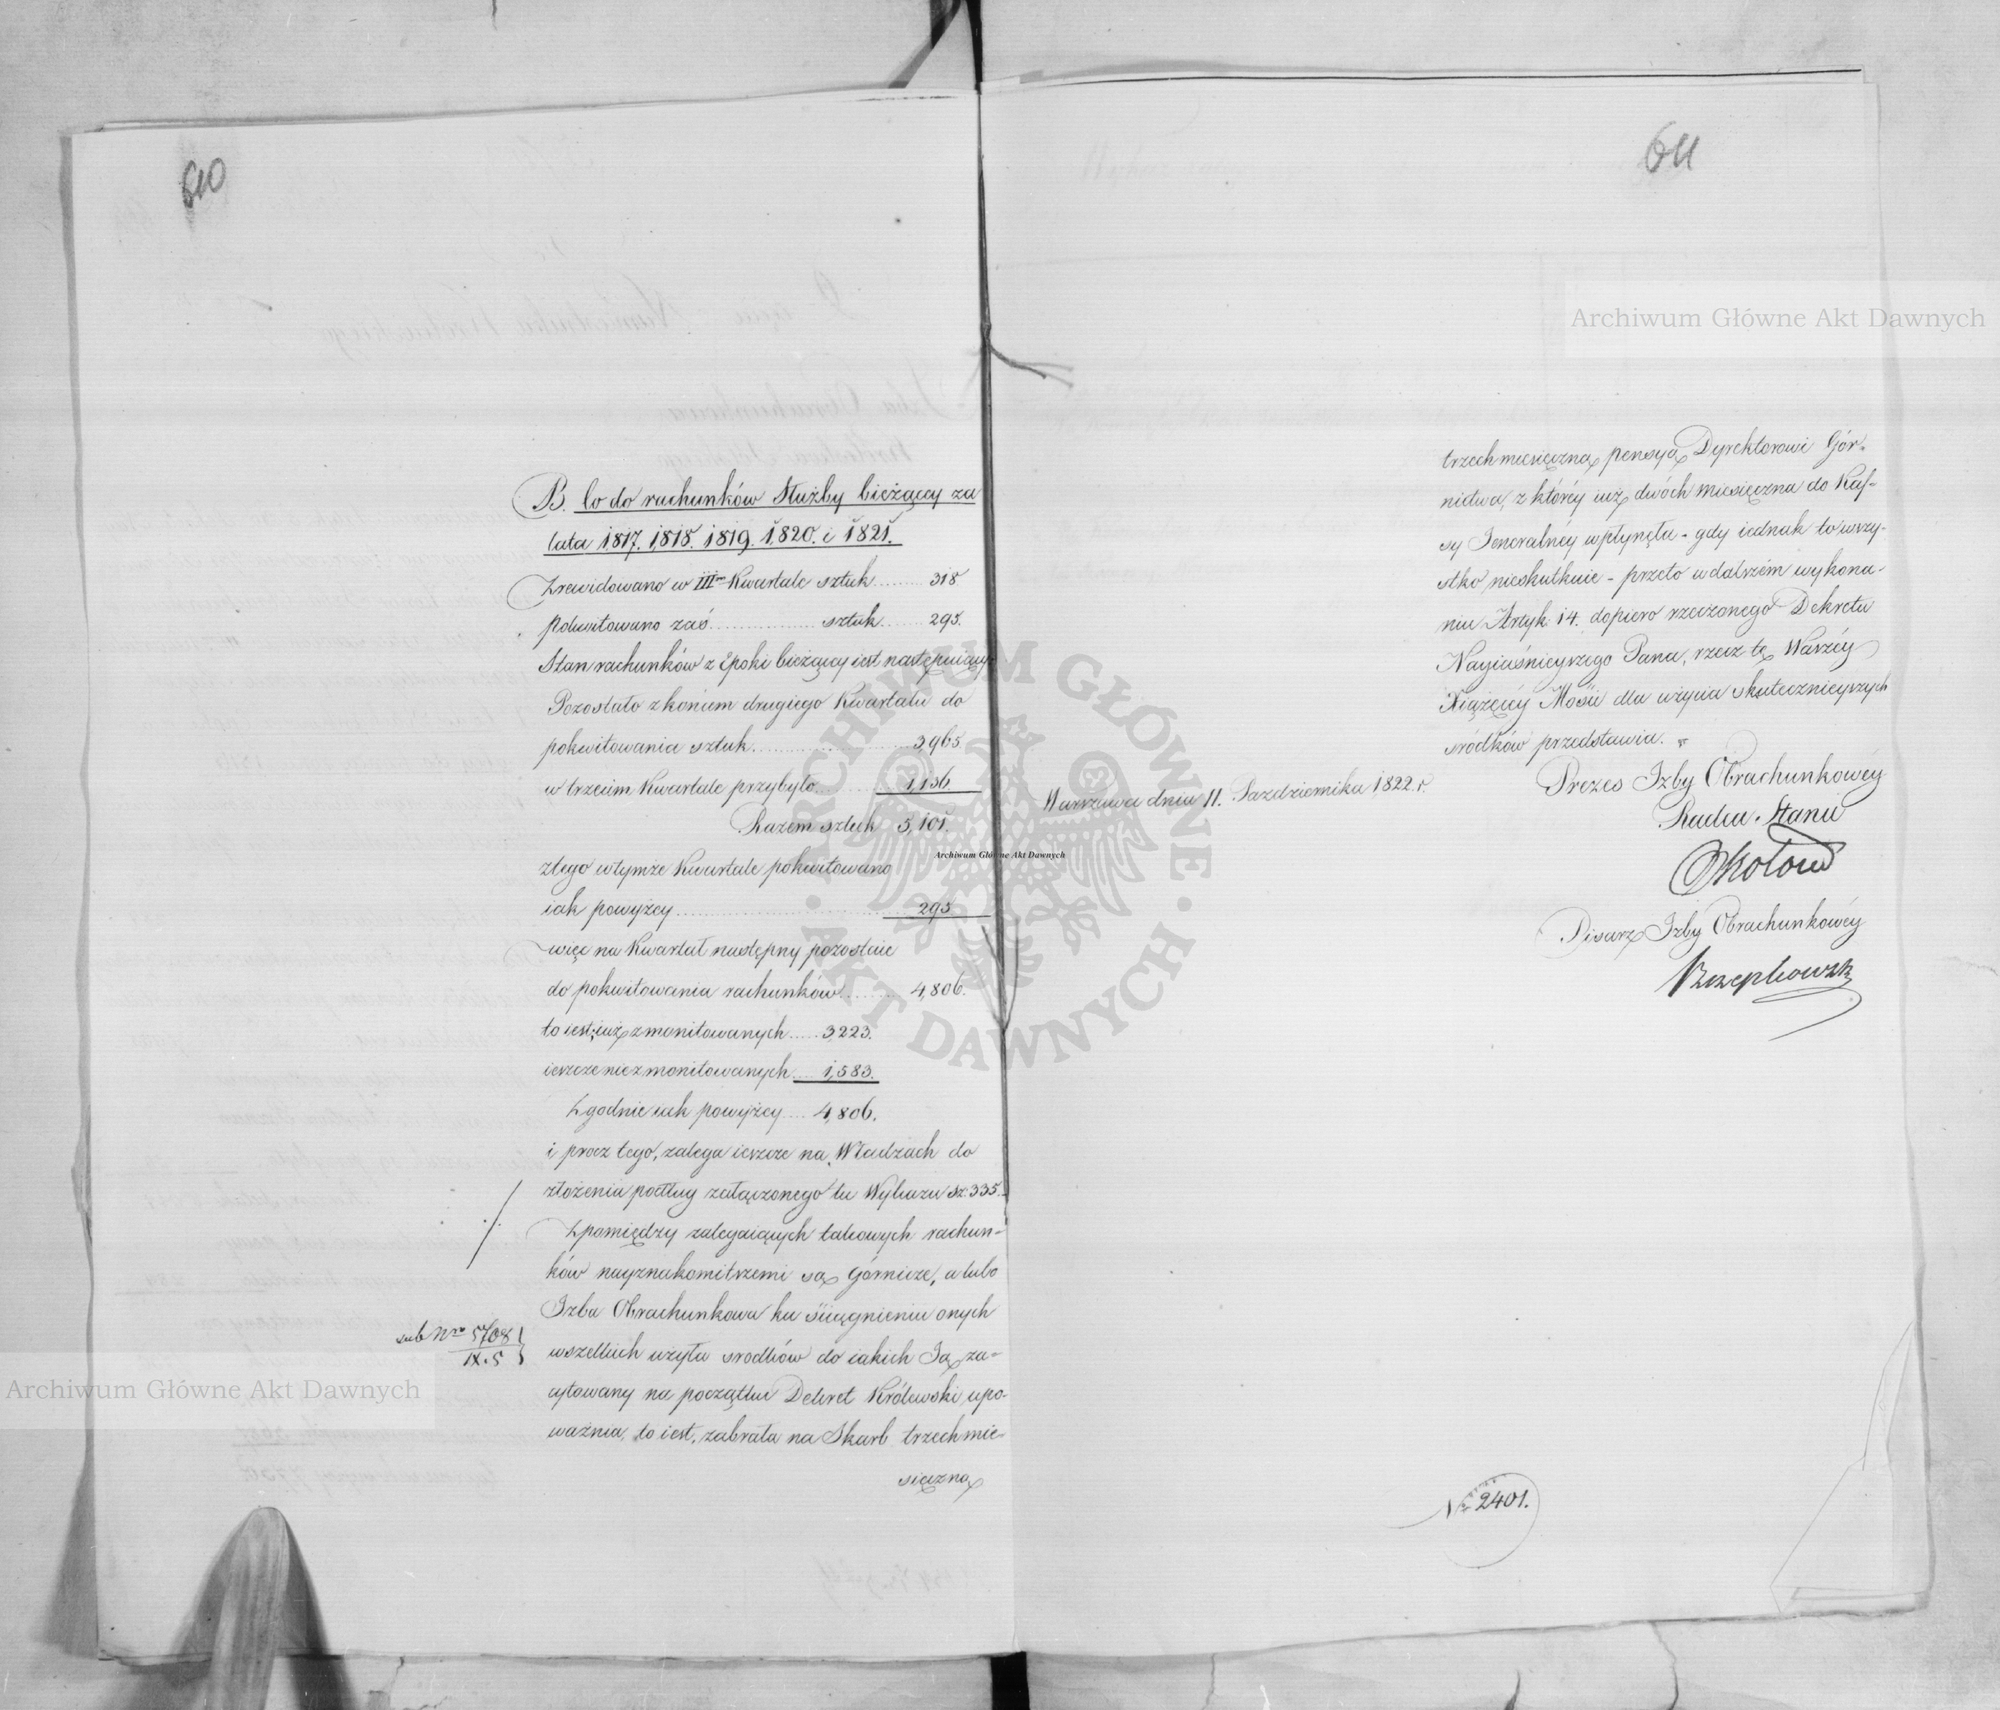 610
B. Co do rachunków Służby bieżącey za
lata 1817. 1818. 1819. 1820. i 1821.
Zrewidowano w IIIm Kwartale sztuk ........ 318
pokwitowano zaś ................ sztuk ...... 295.
Stan rachunków z Epoki bieżącey iest następuiący
Pozostało z końcem drugiego Kwartału do
pokwitowania sztuk ........................ 3,965.
w trzecim Kwartale przybyło ......... 1,136
Razem sztuk 5,101.
z tego w tymże Kwartale pokwitowano
iak powyżey ............................ 295
więc na Kwartał następny pozostaie
do pokwitowania rachunków ......... 4,806.
to iest; iuż zmonitowanych ..... 3223.
ieszcze niezmonitowanych .... 1,583.
Zgodnie iak powyżey .... 4,806.
i procz tego, zalega ieszcze na Władzach do
złożenia podług załączonego tu Wykazu sz: 335.
Zpomiędzy zalegaiących takowych rachun-
ków nayznakomitszemi są Górnicze, a lubo
Izba Obrachunkowa ku ściągnieniu onych
sub Nro 5708
IX. 5
wszelkich użyła srodków do iakich Ją za-
cytowany na początku Dekret Królewski upo-
ważnia, to iest, zabrała na Skarb trzechmie-
sięczną
611
trzechmiesięczną pensyą Dyrektorowi Gór-
nictwa, z któréy iuż dwóch miesięczna do Kas-
sy Jeneralnéy wpłynęła - gdy iednak to wszy-
stko nieskutkuie - przeto w dalszém wykona-
niu Artyk: 14. dopiero rzeczonego Dekretu
Nayiaśnieyszego Pana, rzecz tę Waszéy
Xiążęcéy Mości dla użycia skutecznieyszych
srodków przedstawia.
Warszawa dnia 11. Pazdziernika 1822 r.
Prezes Izby Obrachunkowéy
Radca Stanu
Okołow
Pisarz Izby Obrachunkowéy
Rzempkowski
No 2401.
Archiwum Główne Akt Dawnych
Archiwum Główne Akt Dawnych
Archiwum Główne Akt Dawnych
ARCHIWUM GŁÓWNE · AKT DAWNYCH ·